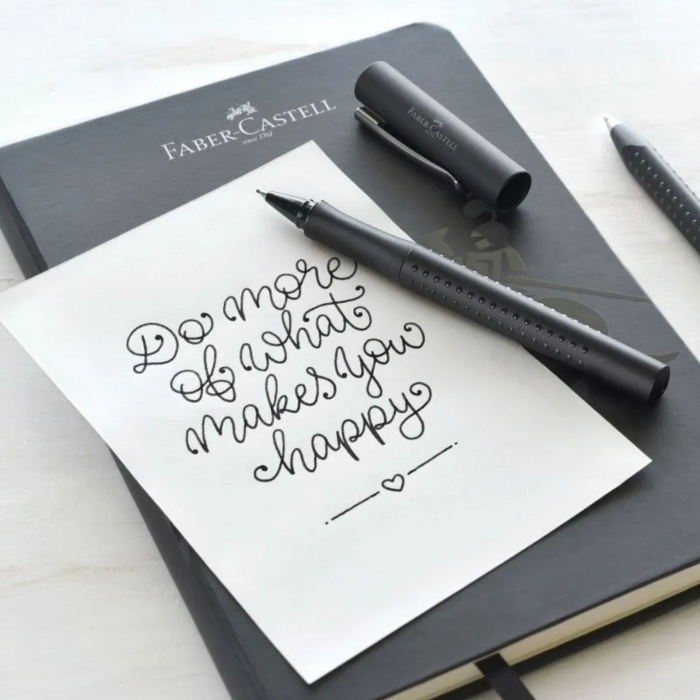 FABER-CASTELL
since 1761
FABER-CASTELL
Do more
of what
makes you
happy